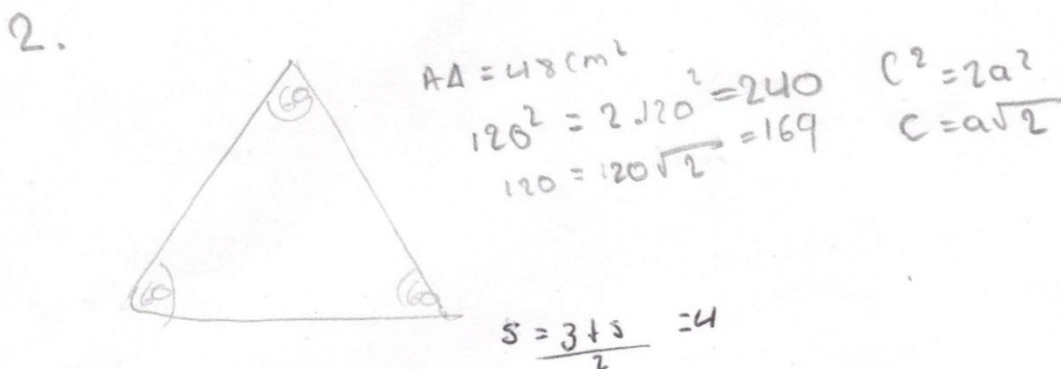 2.
60
60
60
AΔ = 48 cm²
120² = 2.120² = 240
120 = 120√2 = 169
C² = 2a²
C = a√2
s = 3+s/2 = 4